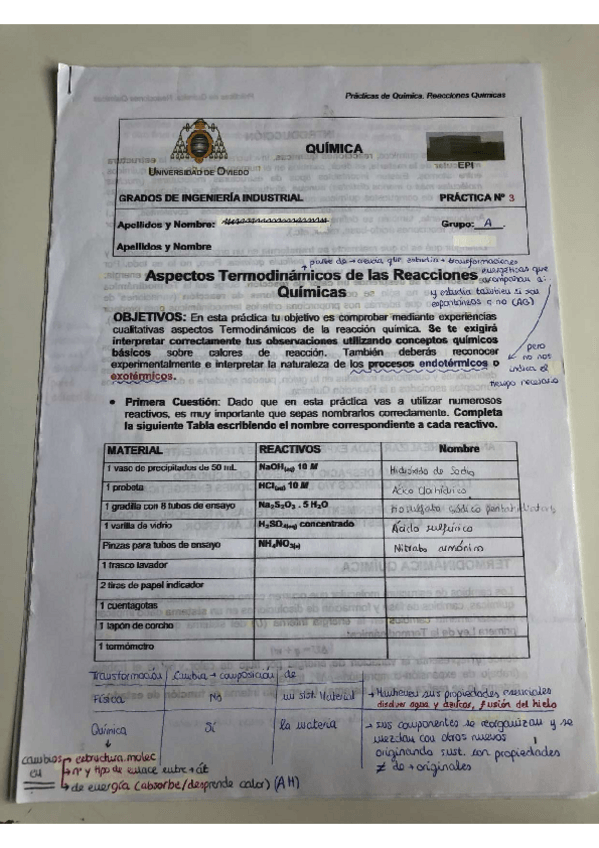 Prácticas de Química. Reacciones Químicas
UNIVERSIDAD DE OVIEDO
QUÍMICA
EPI
GRADOS DE INGENIERÍA INDUSTRIAL
PRÁCTICA Nº 3
Apellidos y Nombre:
Grupo: A
Apellidos y Nombre
parte de → ciencia que estudia → transformaciones
energéticas que
acompañan a
Aspectos Termodinámicos de las Reacciones
Químicas
y estudia también si son
espontáneos o no (ΔG)
OBJETIVOS: En esta práctica tu objetivo es comprobar mediante experiencias
cualitativas aspectos Termodinámicos de la reacción química. Se te exigirá
interpretar correctamente tus observaciones utilizando conceptos químicos
básicos sobre calores de reacción. También deberás reconocer
experimentalmente e interpretar la naturaleza de los procesos endotérmicos o
exotérmicos.
pero
no nos
indica el
tiempo necesario
• Primera Cuestión: Dado que en esta práctica vas a utilizar numerosos
reactivos, es muy importante que sepas nombrarlos correctamente. Completa
la siguiente Tabla escribiendo el nombre correspondiente a cada reactivo.
MATERIAL REACTIVOS Nombre
1 vaso de precipitados de 50 mL NaOH(ac) 10 M Hidróxido de Sodio
1 probeta HCl(ac) 10 M Ácido Clorhídrico
1 gradilla con 8 tubos de ensayo Na2S2O3 . 5 H2O
1 varilla de vidrio H2SO4(ac) concentrado Ácido sulfúrico
Pinzas para tubos de ensayo NH4NO3(s) Nitrato amónico
1 frasco lavador
2 tiras de papel indicador
1 cuentagotas
1 tapón de corcho
1 termómetro
Transformación Cambia → composición de
Física No un sist. Material → Mantienen sus propiedades esenciales
disolver agua y azúcar, fusión del hielo
Química Sí la materia → sus componentes se reorganizan y se
mezclan con otros nuevos
originando sust. con propiedades
≠ de → originales
cambios en → estructura molec
→ nº y tipo de enlace entre → át
→ de energía (absorbe/desprende calor) (ΔH)